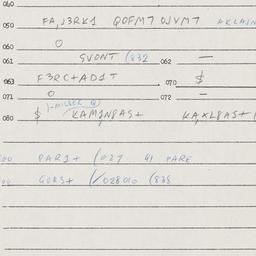 040
050 FA,J3RK1 QOFM7 OJVM7 AKLAJN
060 O
061 SVONT (832 062 —
063 F3RC+AD1T 070 $
071 O 072 —
)-MILLER Q)
080 $ KAM1N8AS+ KA,XL8AS+
00 PAR1+ (027 41 PARE
GOR3+ (/028010 (838